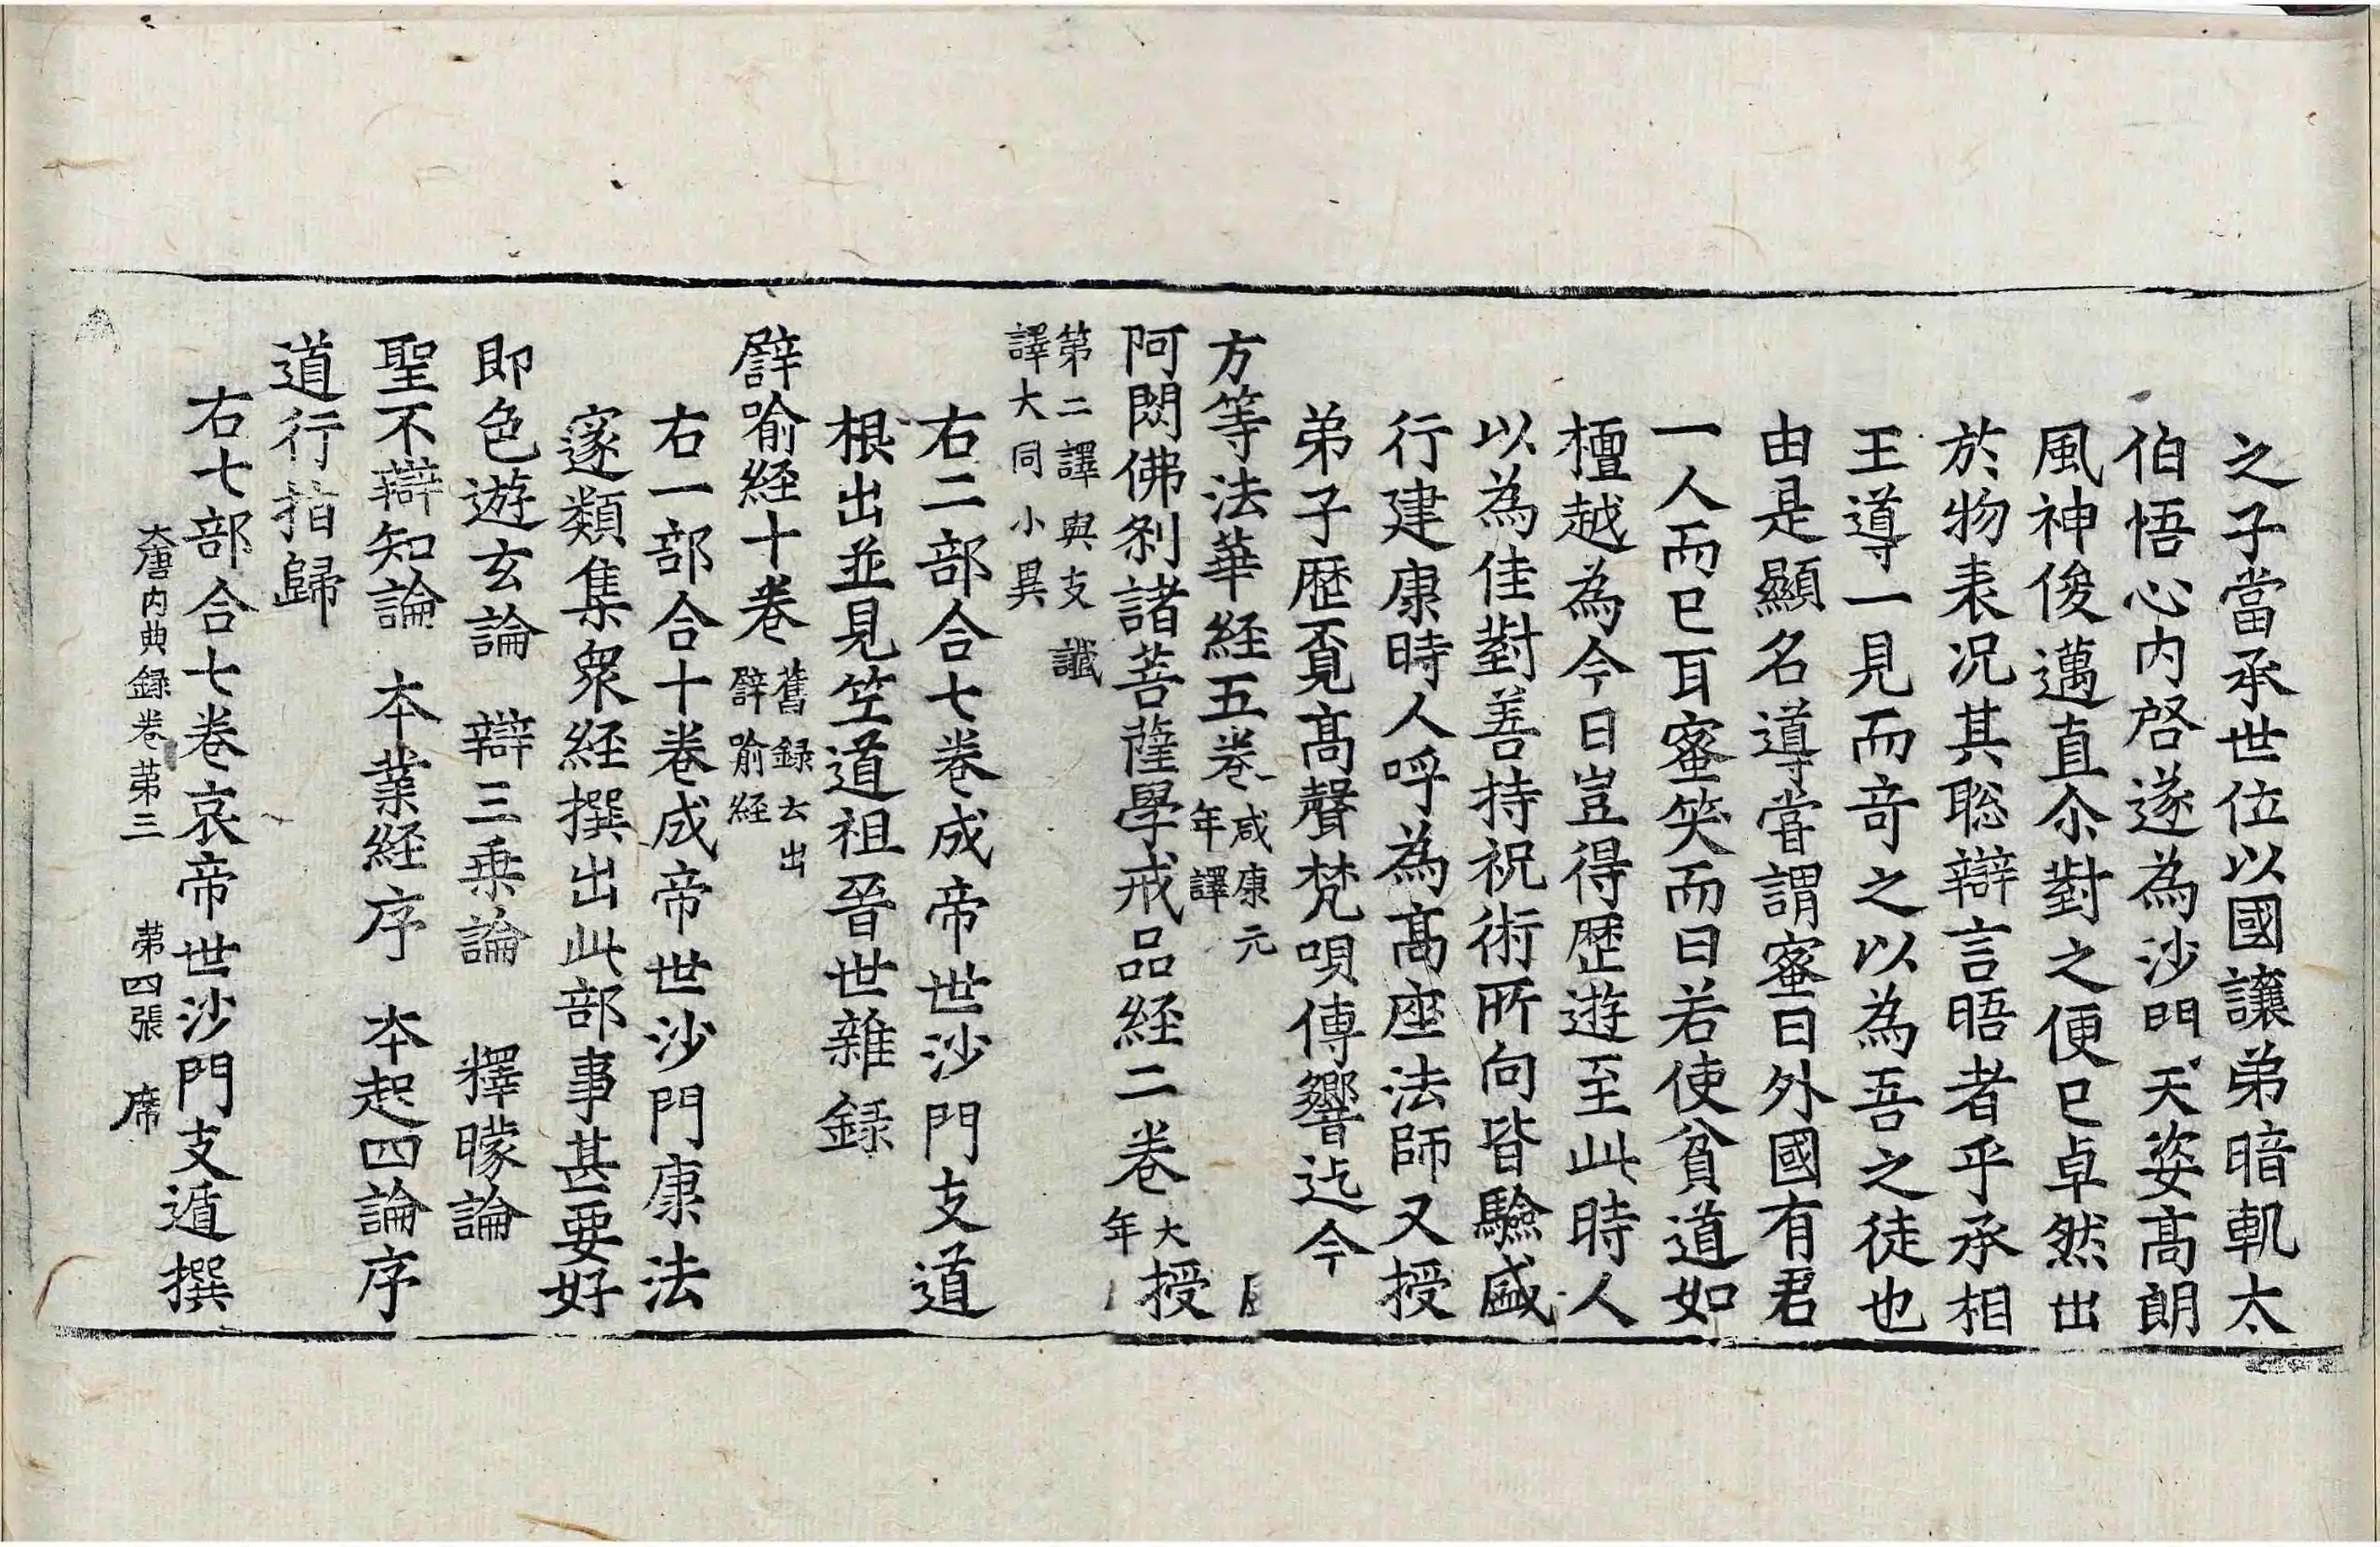 之子當承世位以國讓弟暗軌太
伯悟心内啓遂為沙門天姿髙朗
風神俊邁直尒對之便已卓然出
於物表况其聡辯言晤者乎承相
王導一見而竒之以為吾之徒也
由是顯名導甞謂蜜曰外國有君
一人而已耳蜜笑而曰若使貧道如
檀越為今日豈得歴遊至此時人
以為佳對善持祝術所向皆驗盛
行建康時人呼為髙座法師又授
弟子歴覔髙聲梵唄傳響迄今
方等法華経五卷咸康元年譯
阿閦佛刹諸菩薩學戒品経二卷大年授
第二譯與支讖
譯大同小異
右二部合七卷成帝世沙門支道
根出並見竺道祖晉世雜録
譬喻経十卷舊録云出譬喻経
右一部合十卷成帝世沙門康法
邃類集衆経撰出此部事甚要好
即色遊玄論　辯三乗論　釋矇論
聖不辯知論　本業経序　本起四論序
道行指歸
右七部合七卷哀帝世沙門支遁撰
大唐内典録卷第三　第四張　席